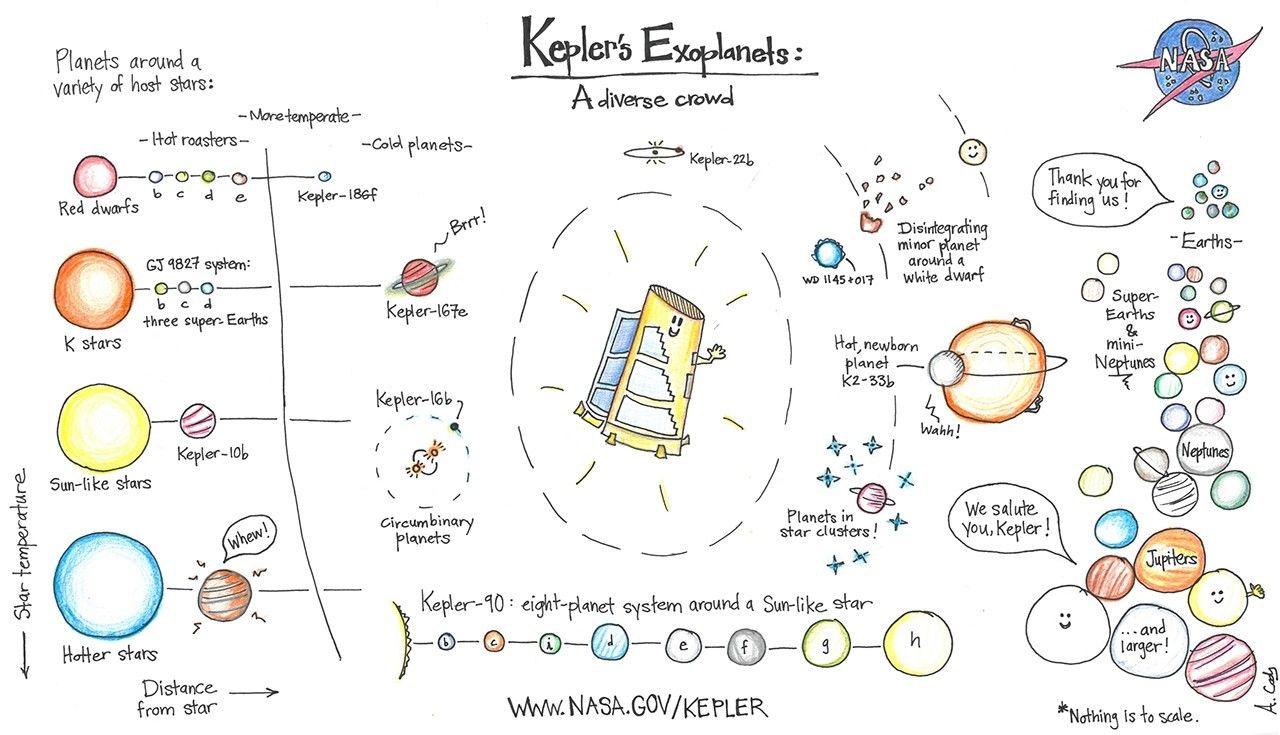 Kepler's Exoplanets:
A diverse crowd
NASA
Planets around a
variety of host stars:
-Hot roasters-
-More temperate-
-Cold planets-
b
c
d
e
Red dwarfs
Kepler-186f
GJ 9827 system:
b
c
d
three super-Earths
K stars
Brrr!
Kepler-167e
Kepler-10b
Sun-like stars
Kepler-16b
Circumbinary
planets
Whew!
Hotter stars
Star temperature
Distance
from star
Kepler-22b
Disintegrating
minor planet
around a
white dwarf
WD 1145+017
Hot, newborn
planet
K2-33b
Wahh!
Planets in
star clusters!
Kepler-90: eight-planet system around a Sun-like star
b
c
i
d
e
f
g
h
WWW.NASA.GOV/KEPLER
Thank you for
finding us!
-Earths-
Super-
Earths
&
mini-
Neptunes
Neptunes
We salute
you, Kepler!
Jupiters
...and
larger!
*Nothing is to scale.
A. Cady